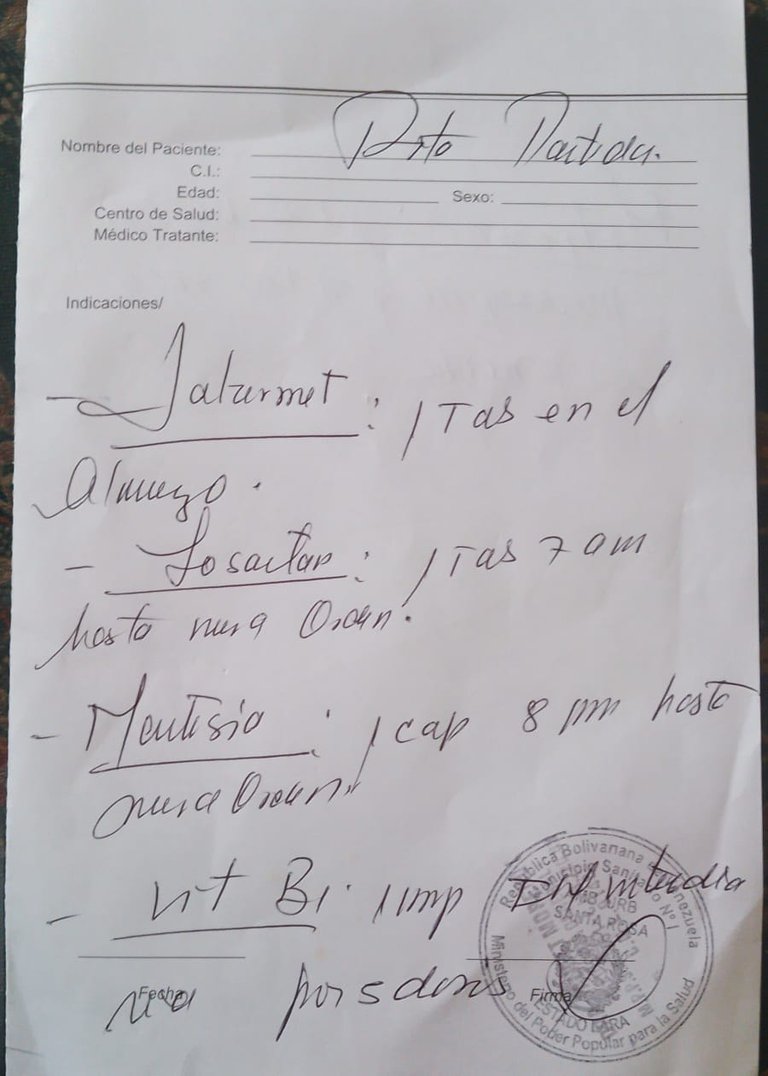 Nombre del Paciente: Rito
C.I.:
Edad: Sexo:
Centro de Salud:
Médico Tratante:
Indicaciones/
- Jalurmet : 1 Tab en el
Almuerzo.
- Losartan : 1 Tab 7 am
hasta nueva Orden.
- : 1 cap 8 pm hasta
nueva Orden
- Vit B1. 1 amp IM interdia
por 5 dosis
Fecha Firma
República Bolivariana de Venezuela
Municipio Sanitario Nº 1
SANTA ROSA
ESTADO LARA
Ministerio del Poder Popular para la Salud